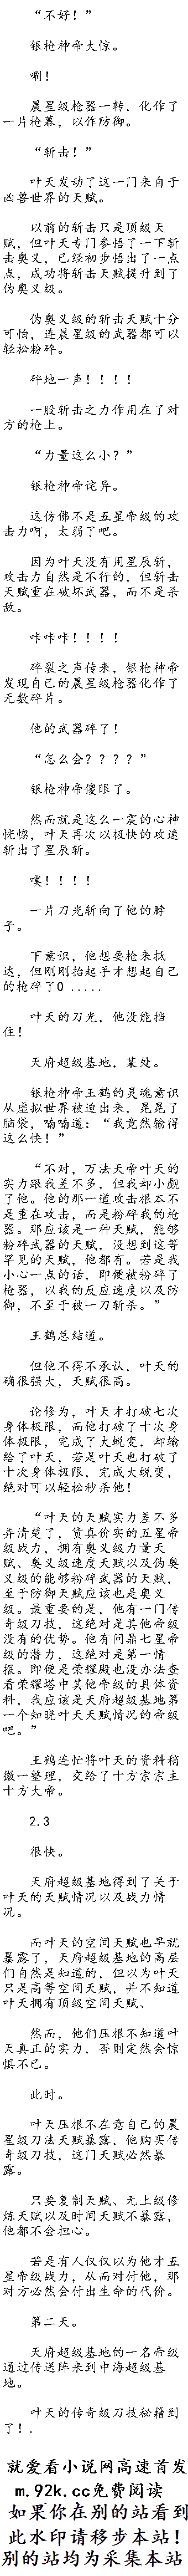 “不好！”
银枪神帝大惊。
唰！
晨星级枪器一转，化作了
一片枪幕，以作防御。
“斩击！”
叶天发动了这一门来自于
凶兽世界的天赋。
以前的斩击只是顶级天
赋，但叶天专门参悟了一下斩
击奥义，已经初步悟出了一点
点，成功将斩击天赋提升到了
伪奥义级。
伪奥义级的斩击天赋十分
可怕，连晨星级的武器都可以
轻松粉碎。
砰地一声！！！！
一股斩击之力作用在了对
方的枪上。
“力量这么小？”
银枪神帝诧异。
这仿佛不是五星帝级的攻
击力啊，太弱了吧。
因为叶天没有用星辰斩，
攻击力自然是不行的，但斩击
天赋重在破坏武器，而不是杀
敌。
咔咔咔！！！！
碎裂之声传来，银枪神帝
发现自己的晨星级枪器化作了
无数碎片。
他的武器碎了！
“怎么会？？？？”
银枪神帝傻眼了。
然而就是这么一震的心神
恍惚，叶天再次以极快的攻速
斩出了星辰斩。
噗！！！！
一片刀光斩向了他的脖
子。
下意识，他想要枪来抵
达，但刚刚抬起手才想起自己
的枪碎了0 .....
叶天的刀光，他没能挡
住！
天府超级基地，某处。
银枪神帝王鹤的灵魂意识
从虚拟世界被迫出来，晃晃了
脑袋，喃喃道：“我竟然输得
这么快！”
“不对，万法天帝叶天的
实力跟我差不多，但我却小觑
了他。他的那一道攻击根本不
是重在攻击，而是粉碎我的枪
器。那应该是一种天赋，能够
粉碎武器的天赋，没想到这等
罕见的天赋，他都有。若是我
小心一点的话，即便被粉碎了
枪器，以我的反应速度以及防
御，不至于被一刀斩杀。”
王鹤总结道。
但他不得不承认，叶天的
确很强大，天赋很高。
论修为，叶天才打破七次
身体极限，而他打破了十次身
体极限，完成了大蜕变，却输
给了叶天，若是叶天也打破了
十次身体极限，完成大蜕变，
绝对可以轻松秒杀他！
“叶天的天赋实力差不多
弄清楚了，货真价实的五星帝
级战力，拥有奥义级力量天
赋、奥义级速度天赋以及伪奥
义级的能够粉碎武器的天赋，
至于防御天赋应该也是奥义
级。最重要的是，他有一门传
奇级刀技，这绝对是其他帝级
没有的优势。他有问鼎七星帝
级的潜力，这绝对是第一情
报。即便是荣耀殿也没办法查
看荣耀塔中其他帝级的具体资
料，我应该是天府超级基地第
一个知晓叶天天赋情况的帝级
吧。”
王鹤连忙将叶天的资料稍
微一整理，交给了十方宗宗主
十方大帝。
2.3
很快。
天府超级基地得到了关于
叶天的天赋情况以及战力情
况。
而叶天的空间天赋也早就
暴露了，天府超级基地的高层
们自然是知道的，但以为叶天
只是高等空间天赋，并不知道
叶天拥有顶级空间天赋、
然而，他们压根不知道叶
天真正的实力，否则定然会惊
惧不已。
此时。
叶天压根不在意自己的晨
星级刀法天赋暴露，他购买传
奇级刀技，这门天赋必然暴
露。
只要复制天赋、无上级修
炼天赋以及时间天赋不暴露，
他都不会担心。
若是有人仅仅以为他才五
星帝级战力，从而对付他，那
对方必然会付出生命的代价。
第二天。
天府超级基地的一名帝级
通过传送阵来到中海超级基
地。
叶天的传奇级刀技秘籍到
了！.
就爱看小说网高速首发
m.92k.cc免费阅读
如果你在别的站看到
此水印请移步本站！
别的站均为采集本站